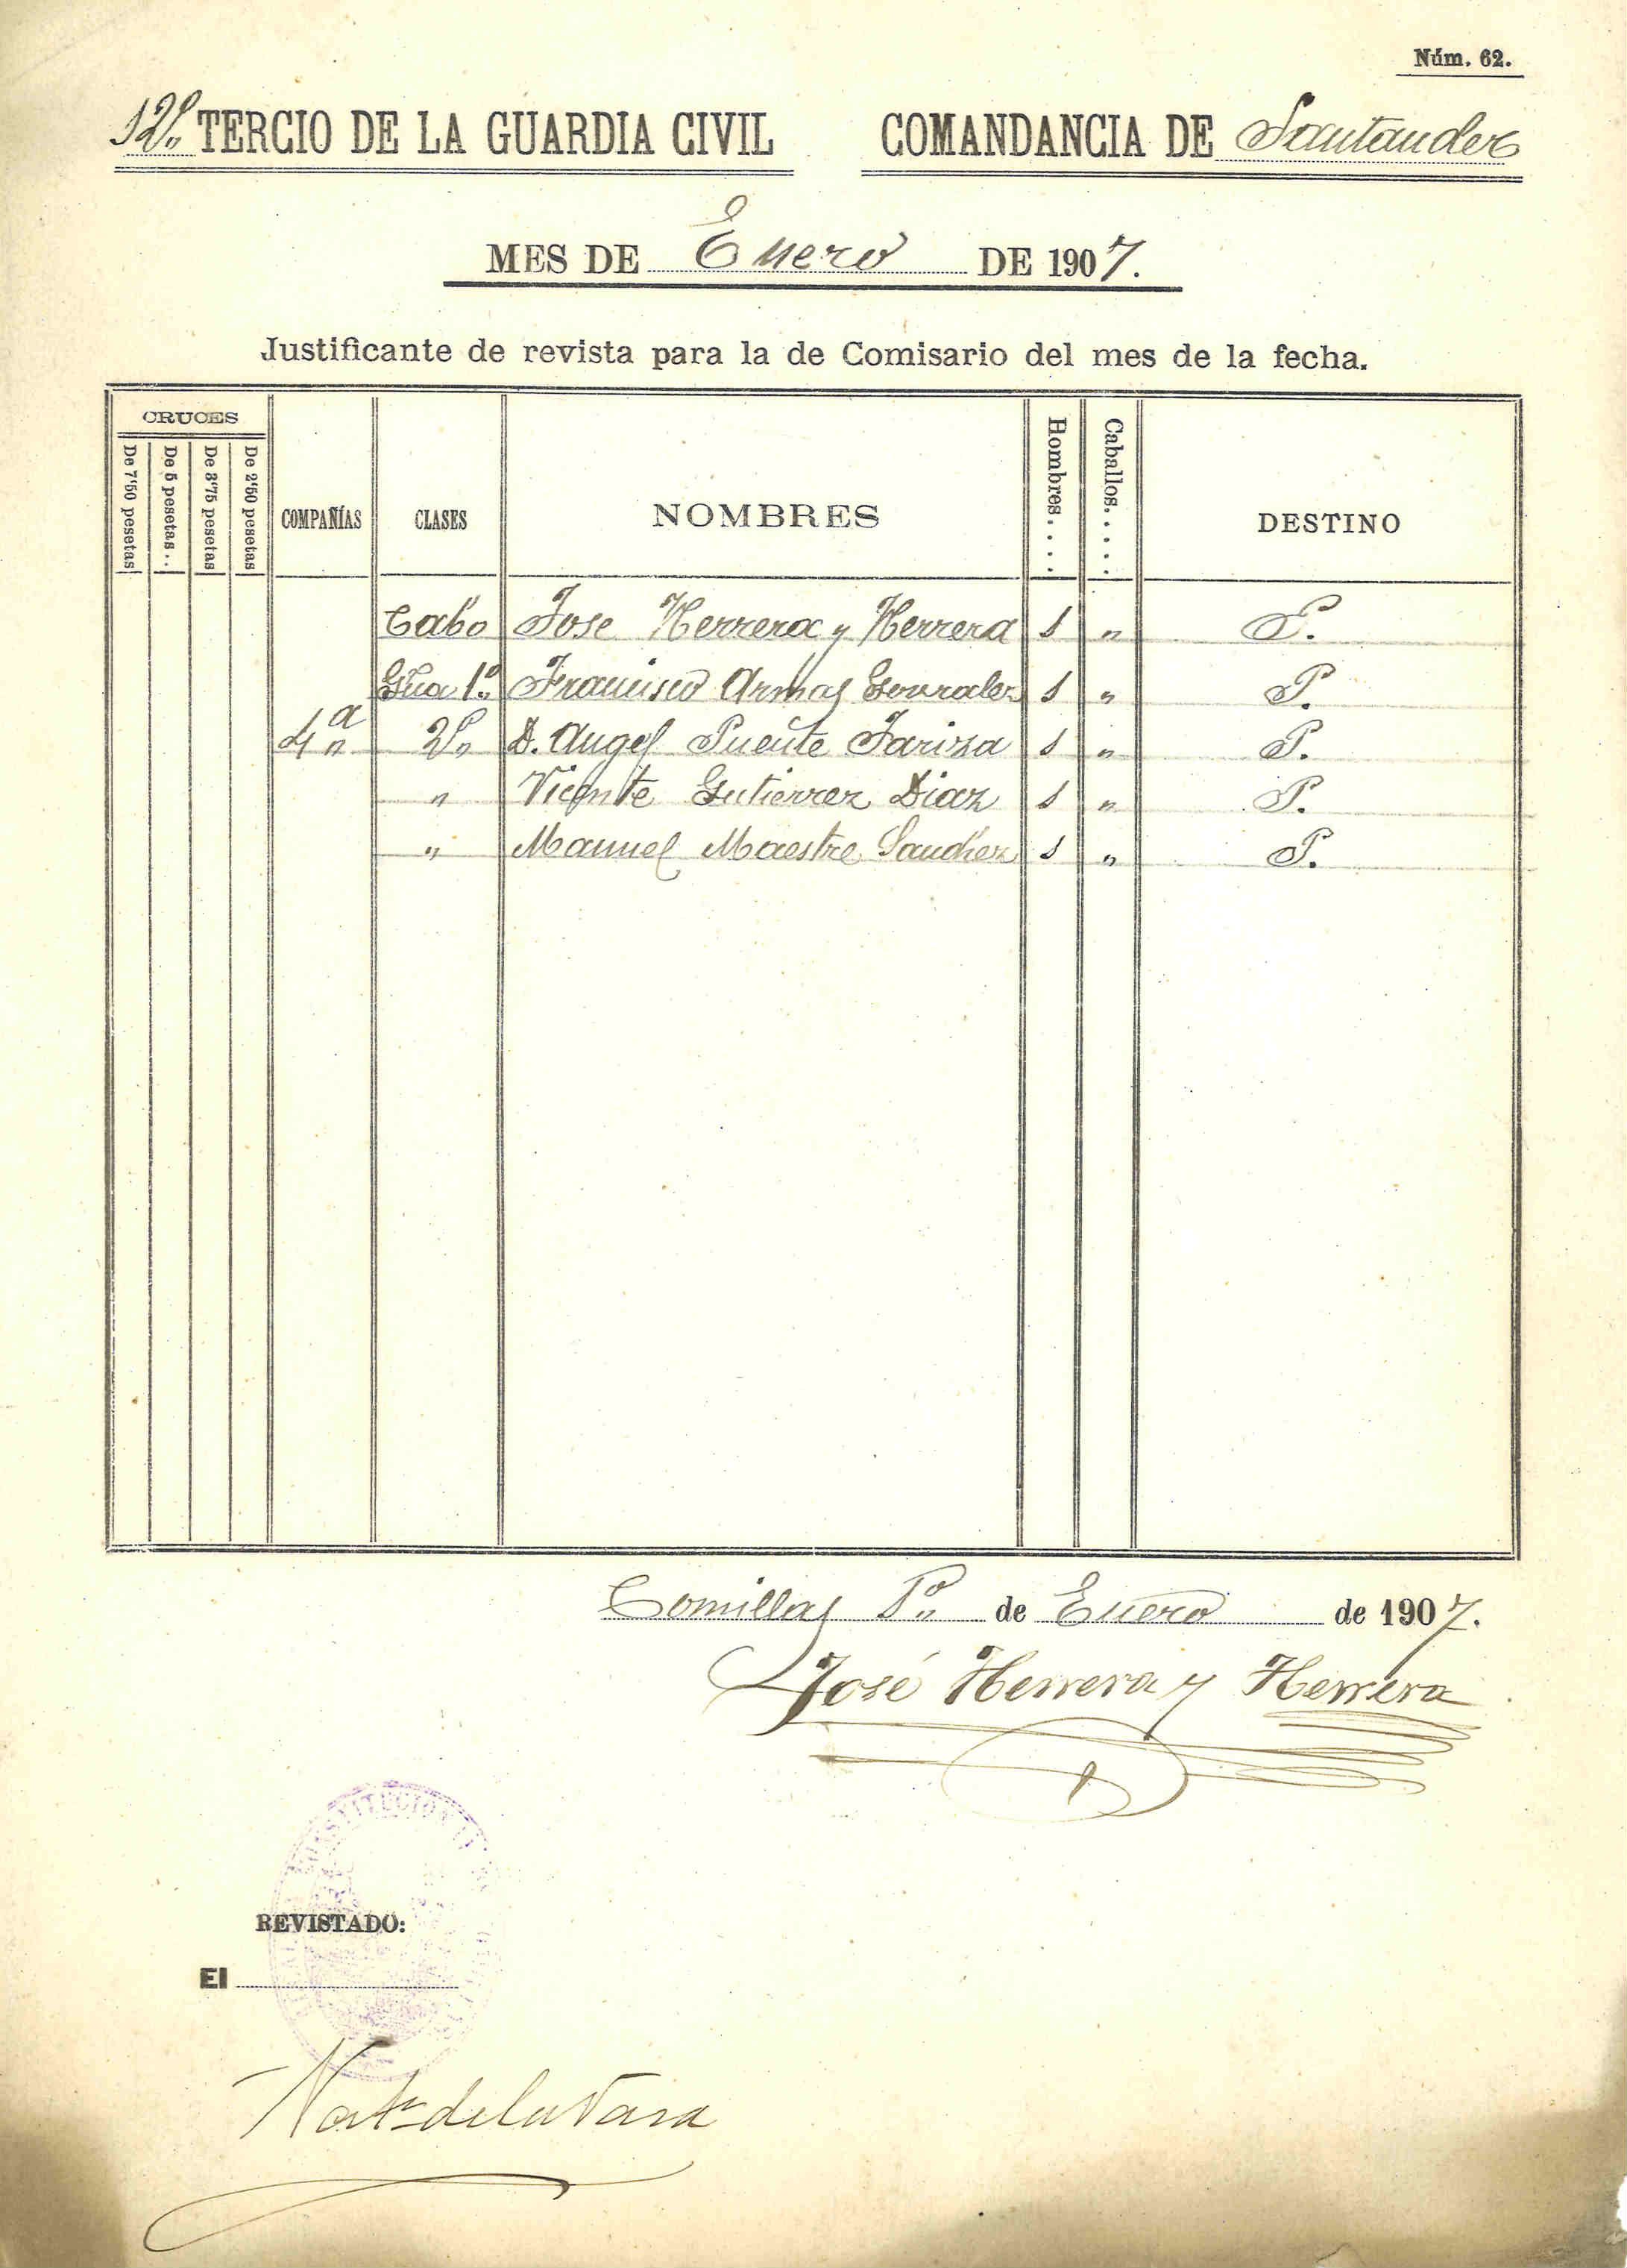 Núm. 62.
12º TERCIO DE LA GUARDIA CIVIL COMANDANCIA DE Santander
MES DE Enero DE 1907.
Justificante de revista para la de Comisario del mes de la fecha.
CRUCES
De 7'50 pesetas De 5 pesetas.. De 3'75 pesetas De 2'50 pesetas COMPAÑÍAS CLASES NOMBRES Hombres.... Caballos..... DESTINO
Cabo Jose Herrera y Herrera 1 " P.
Gua 1º Francisco Armas Gonzalez 1 " P.
4ª 2º D. Angel Puente Fariza 1 " P.
" Vicente Gutierrez Diaz 1 " P.
" Manuel Maestre Sanchez 1 " P.
Comillas 1º de Enero de 1907.
José Herrera y Herrera
REVISTADO:
El
de la Vara